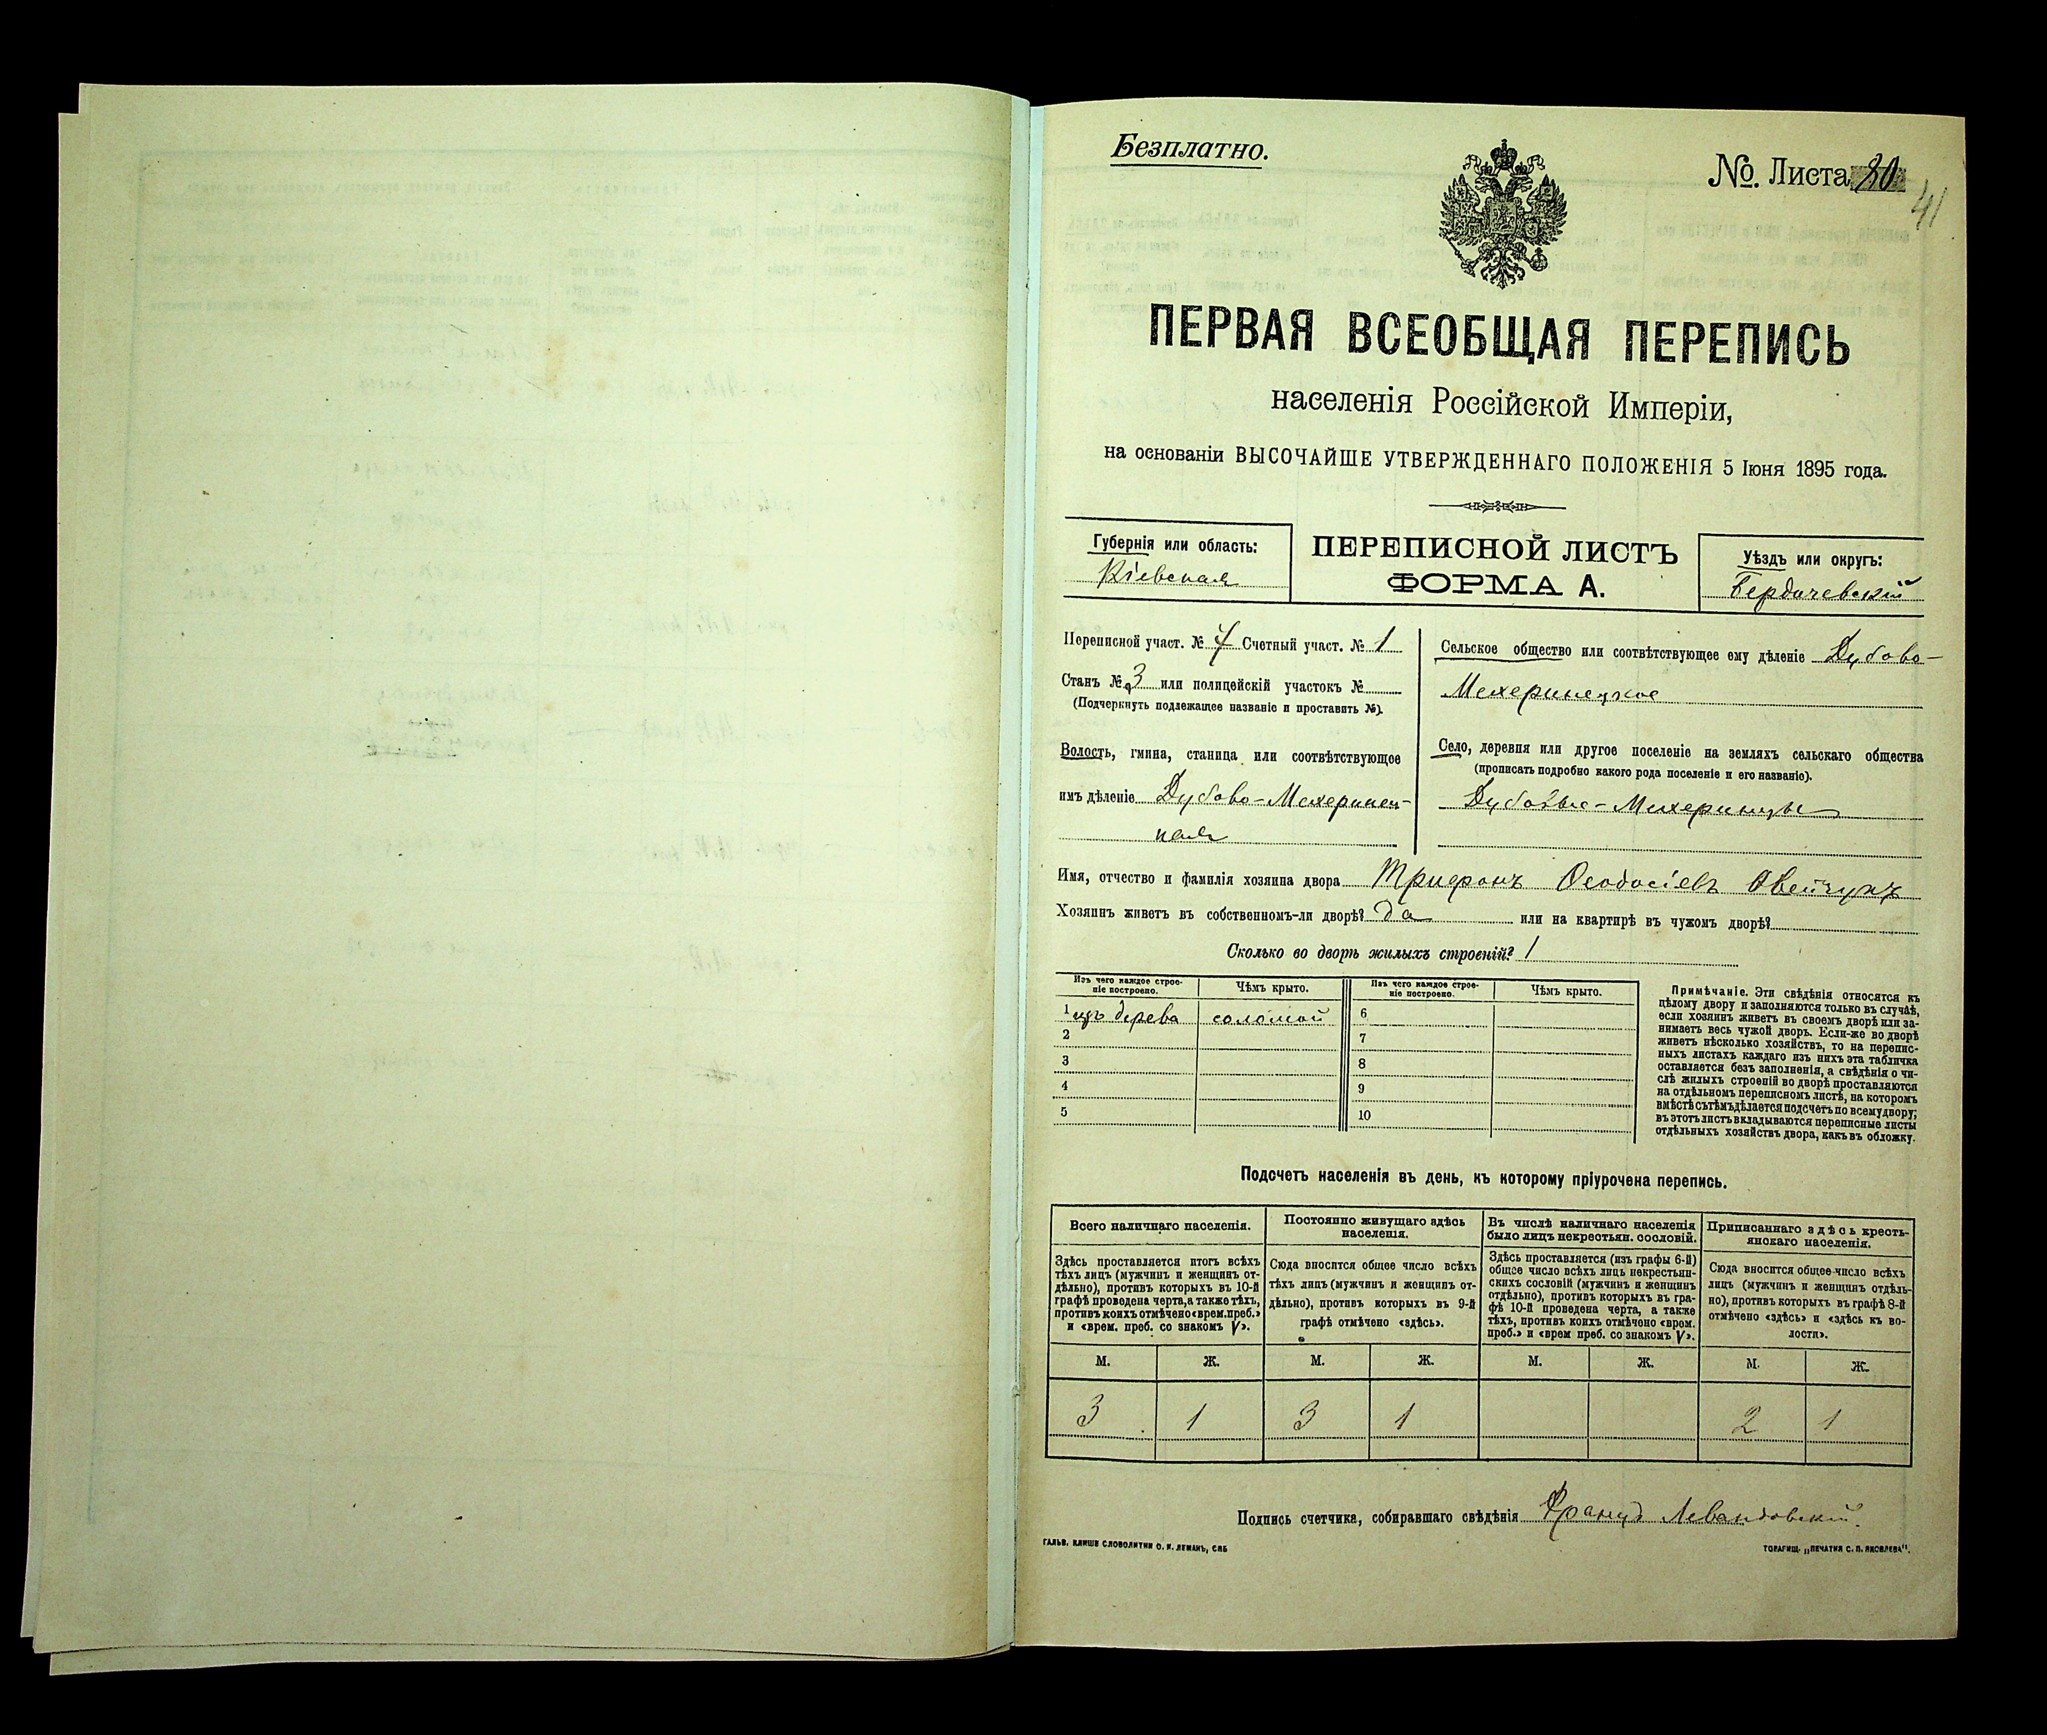 Безплатно.
No. Листа 20
41
ПЕРВАЯ ВСЕОБЩАЯ ПЕРЕПИСЬ
населенія Россійской Имперіи,
на основаніи ВЫСОЧАЙШЕ УТВЕРЖДЕННАГО ПОЛОЖЕНІЯ 5 Іюня 1895 года.
Губернія или область:
Кіевская
ПЕРЕПИСНОЙ ЛИСТЪ
ФОРМА А.
Уѣздъ или округъ:
Бердичевскій
Переписной участ. № 4 Счетный участ. № 1
Станъ № 3 или полицейскій участокъ №
(Подчеркнуть подлежащее названіе и проставить №).
Волость, гмина, станица или соотвѣтствующее
имъ дѣленіе Дубово-Мехеринец-
кая
Сельское общество или соотвѣтствующее ему дѣленіе Дубово-
Мехеринецкое
Село, деревня или другое поселеніе на земляхъ сельскаго общества
(прописать подробно какого рода поселеніе и его названіе).
Дубовые-Мехеринцы
Имя, отчество и фамилія хозяина двора Трифонъ Ѳеодосіевъ
Хозяинъ живетъ въ собственномъ-ли дворѣ? да или на квартирѣ въ чужомъ дворѣ?
Сколько во дворѣ жилыхъ строеній? 1
Изъ чего каждое строе-
ніе построено.
Чѣмъ крыто.
Изъ чего каждое строе-
ніе построено.
Чѣмъ крыто.
1 изъ дерева соломой 6
2 7
3 8
4 9
5 10
Примѣчаніе. Эти свѣдѣнія относятся къ
цѣлому двору и заполняются только въ случаѣ,
если хозяинъ живетъ въ своемъ дворѣ или за-
нимаетъ весь чужой дворъ. Если-же во дворѣ
живетъ нѣсколько хозяйствъ, то на перепис-
ныхъ листахъ каждаго изъ нихъ эта табличка
оставляется безъ заполненія, а свѣдѣнія о чи-
слѣ жилыхъ строеній во дворѣ проставляются
на отдѣльномъ переписномъ листѣ, на которомъ
вмѣстѣ съ тѣмъ дѣлается подсчетъ по всему двору;
въ этотъ листъ вкладываются переписные листы
отдѣльныхъ хозяйствъ двора, какъ въ обложку.
Подсчетъ населенія въ день, къ которому пріурочена перепись.
Всего наличнаго населенія.
Здѣсь проставляется итогъ всѣхъ
тѣхъ лицъ (мужчинъ и женщинъ от-
дѣльно), противъ которыхъ въ 10-й
графѣ проведена черта, а также тѣхъ,
противъ коихъ отмѣчено «врем. преб.»
и «врем. преб. со знакомъ V».
Постоянно живущаго здѣсь
населенія.
Сюда вносится общее число всѣхъ
тѣхъ лицъ (мужчинъ и женщинъ от-
дѣльно), противъ которыхъ въ 9-й
графѣ отмѣчено «здѣсь».
Въ числѣ наличнаго населенія
было лицъ некрестьян. сословій.
Здѣсь проставляется (изъ графы 6-й)
общее число всѣхъ лицъ некрестьян-
скихъ сословій (мужчинъ и женщинъ
отдѣльно), противъ которыхъ въ гра-
фѣ 10-й проведена черта, а также
тѣхъ, противъ коихъ отмѣчено «врем.
преб.» и «врем преб. со знакомъ V».
Приписаннаго здѣсь кресть-
янскаго населенія.
Сюда вносится общее число всѣхъ
лицъ (мужчинъ и женщинъ отдѣль-
но), противъ которыхъ въ графѣ 8-й
отмѣчено «здѣсь» и «здѣсь къ во-
лости».
М. Ж. М. Ж. М. Ж. М. Ж.
3 1 3 1 2 1
Подпись счетчика, собиравшаго свѣдѣнія Францъ Левандовскій.
ГАЛЬВ. КЛИШЕ СЛОВОЛИТНИ О. И. ЛЕМАНЪ, СПБ
ТОВАРИЩ. „ПЕЧАТНЯ С. П. ЯКОВЛЕВА“.